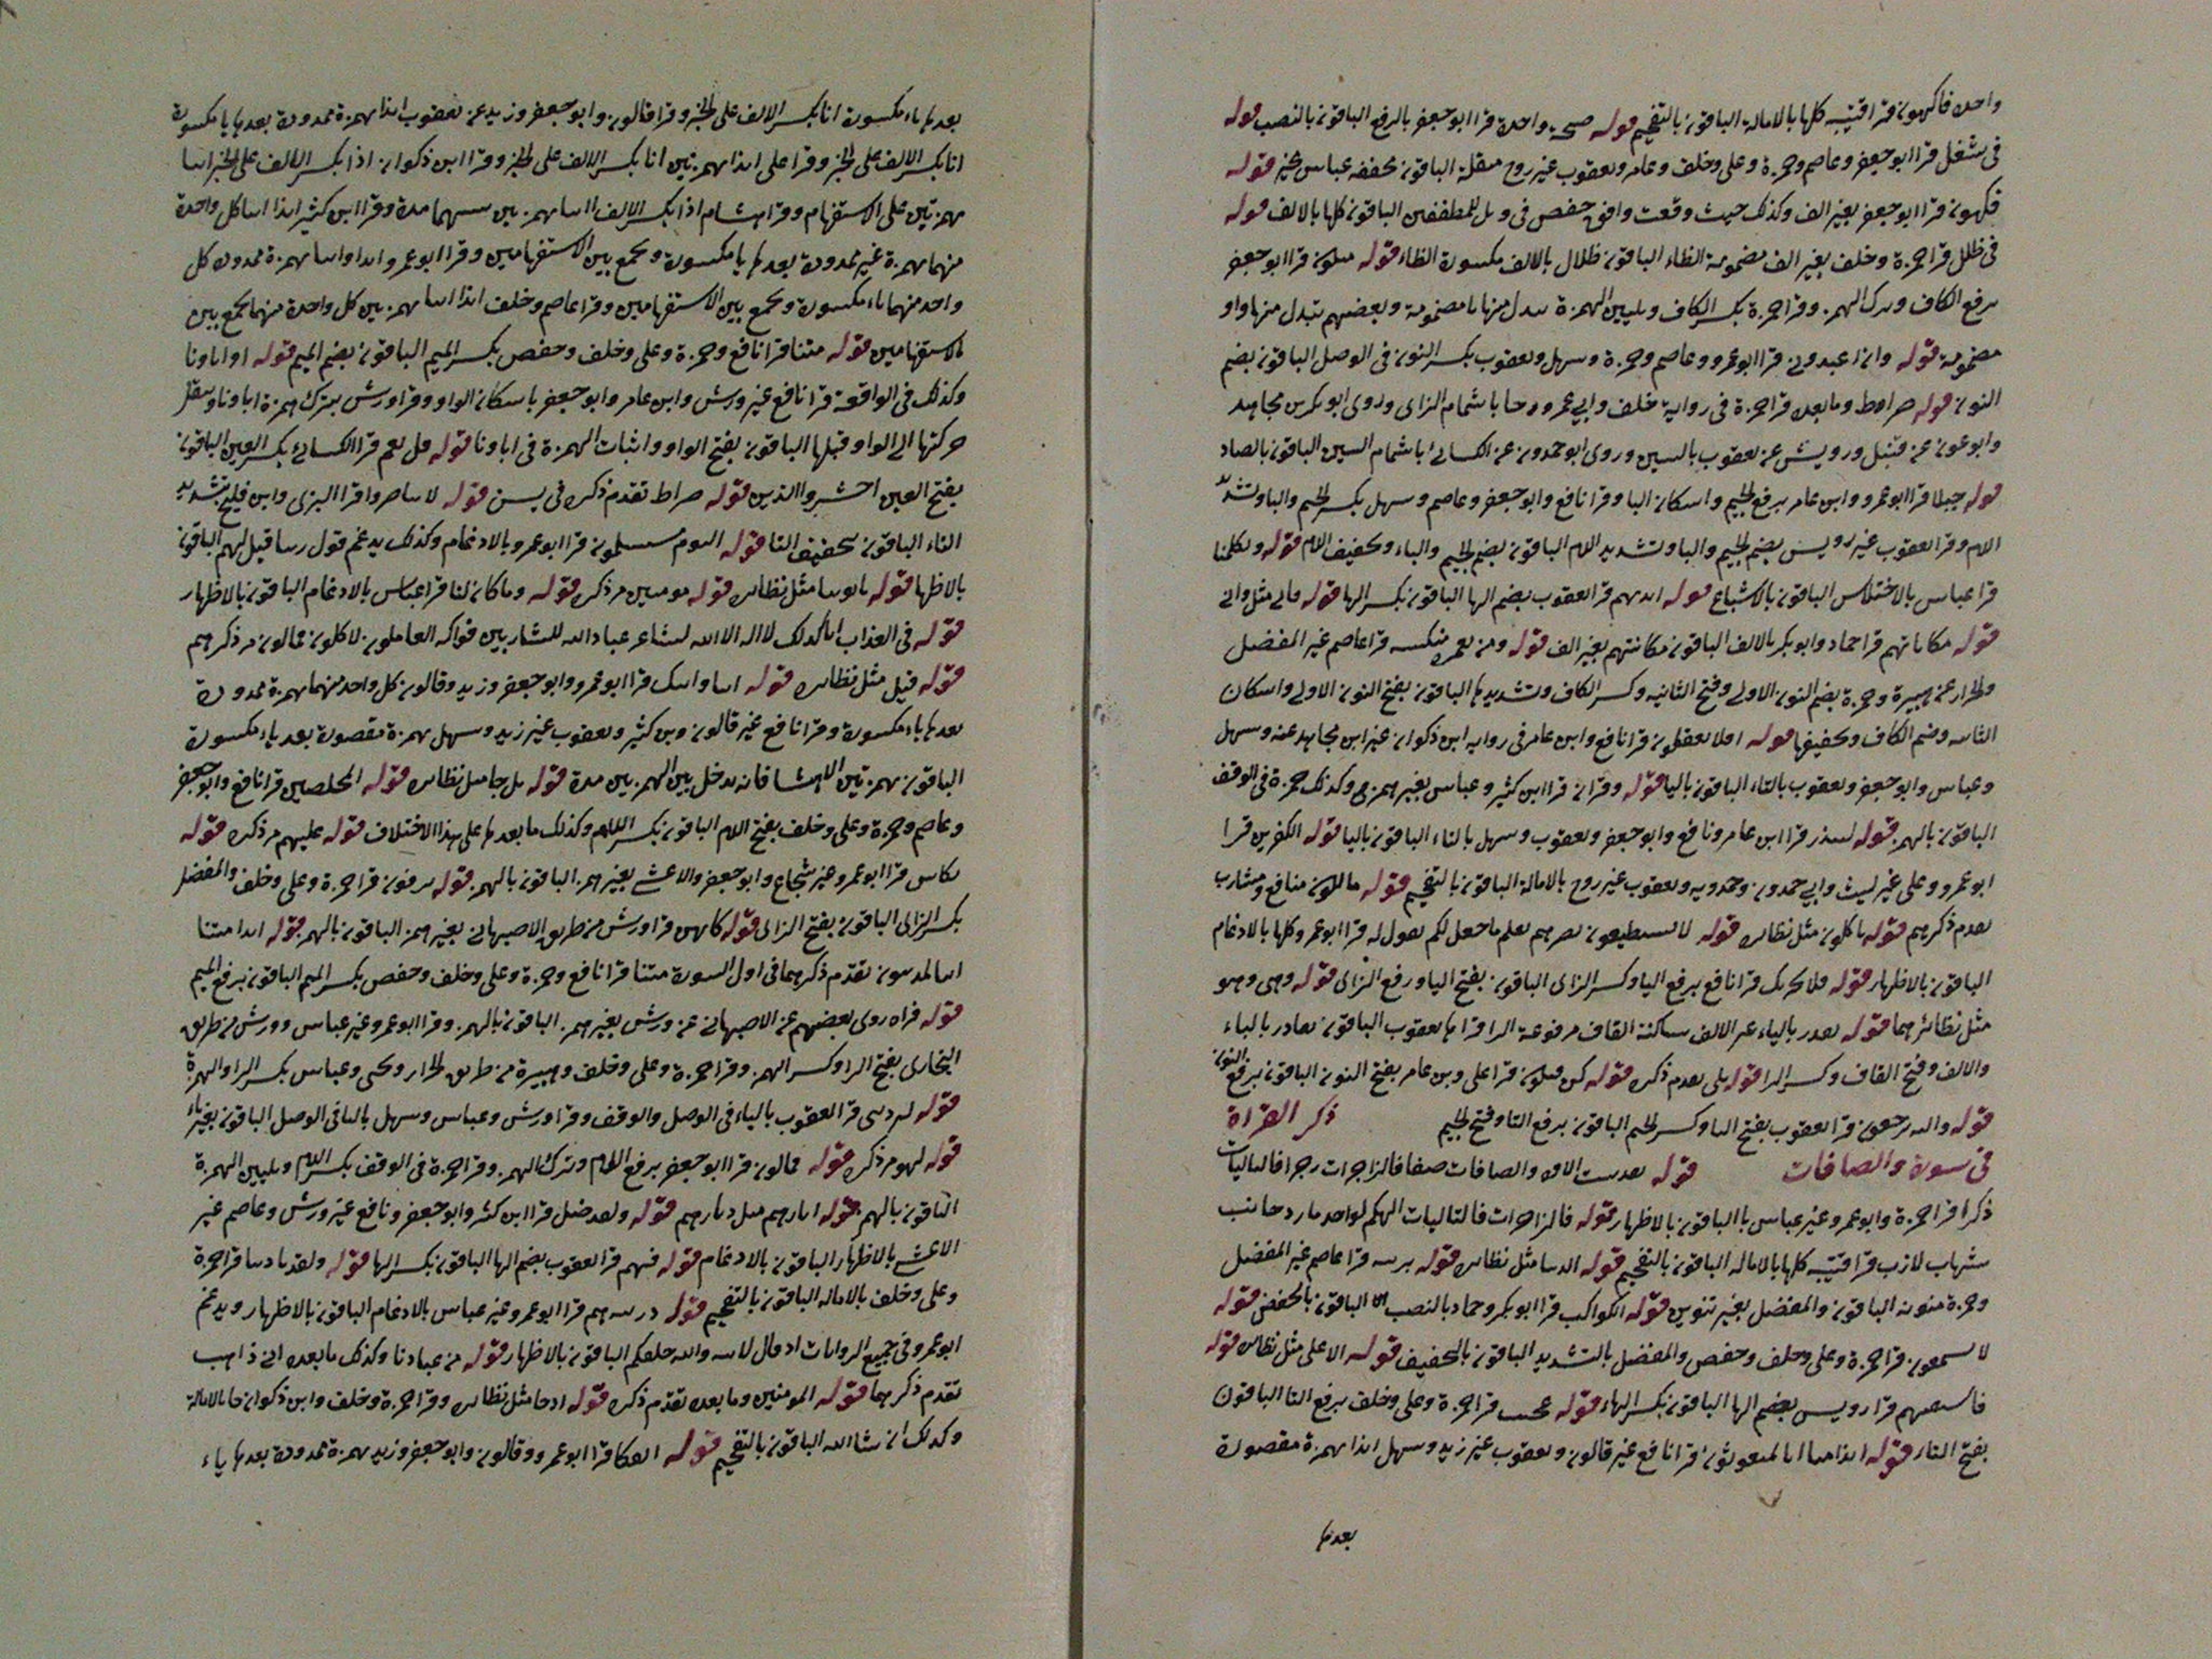 واحده فاكهون قرا قتيبه كلها بالامالة الباقون بالتفخيم قوله صيحة واحدة قرا ابو جعفر بالرفع الباقون بالنصب قوله
فى شغل قرا ابو جعفر وعاصم وحمزة وعلى وخلف وعامر ويعقوب غير روح مثقلة الباقون مخففه عباس مخير قوله
فكهون قرا ابو جعفر بغير الف وكذلك حيث وقعت وافق حفص فى ويل للمطففين الباقون كلها بالالف قوله
فى ظلل قرا حمزة وخلف بغير الف مضمومة الظاء الباقون ظلال بالالف مكسورة الظاء قوله متكون قرا ابو جعفر
برفع الكاف وترك الهمز وقرا حمزة بكسر الكاف وتليين الهمزة يبدل منها يا مضمومة وبعضهم يبدل منها واو
مضمومة قوله وان اعبدونى قرا ابو عمرو وعاصم وحمزة وسهل ويعقوب بكسر النون فى الوصل الباقون بضم
النون قوله صراط وما بعده قرا حمزة فى رواية خلف وابى عمرو ورجا باشمام الزاى وروى ابو بكر بن مجاهد
وابو عون عن قنبل ورويش عن يعقوب بالسين وروى ابو حمدون عن الكسائى باشمام السين الباقون بالصاد
قوله جبلا قرا ابو عمرو وابن عامر برفع الجيم واسكان البا وقرا نافع وابو جعفر وعاصم وسهل بكسر الجيم والبا وتشديد
اللام وقرا يعقوب غير رويس بضم الجيم والبا وتشديد اللام الباقون بضم الجيم والباء وتخفيف اللام قوله وتكلمنا
قرا عباس بالاختلاس الباقون بالاشباع قوله ايديهم قرا يعقوب بضم الها الباقون بكسر الها قوله فانى مثل وانى
قوله مكاناتهم قرا حماد وابو بكر بالالف الباقون مكانتهم بغير الف قوله ومن نعمره ننكسه قرا عاصم غير المفضل
والخراز عن هبيرة وحمزة بضم النون الاولى وفتح الثانيه وكسر الكاف وتشديدها الباقون بفتح النون الاولى واسكان
الثانيه وضم الكاف وتخفيفها قوله افلا تعقلون قرا نافع وابن عامر فى روايه ابن ذكوان غير ابن مجاهد عنه وسهل
وعباس وابو جعفر ويعقوب بالتاء الباقون باليا قوله وقران قرا ابن كثير وعباس بغير همز وكذلك حمزة فى الوقف
الباقون بالهمز قوله لينذر قرا ابن عامر ونافع وابو جعفر ويعقوب وسهل بالتاء الباقون باليا قوله الكفرين قرا
ابو عمرو وعلى غير ليث وابى حمدون وحمدويه ويعقوب غير روح بالامالة الباقون بالتفخيم قوله مالكون منافع ومشارب
تقدم ذكرهم قوله ياكلون مثل نظايره قوله لا يستطيعون نصرهم نعلم ما جعل لكم نقول له قرا ابو عمرو كلها بالادغام
الباقون بالاظهار قوله فلا يحزنك قرا نافع برفع اليا وكسر الزاى الباقون بفتح اليا ورفع الزاى قوله وهى وهو
مثل نظائرهما قوله يقدر بالياء غير الالف ساكنة القاف مرفوعة الرا قراها يعقوب الباقون بقادر بالباء
والالف وفتح القاف وكسر الرا قوله بلى تقدم ذكره قوله كن فيكون قرا على وبن عامر بفتح النون الباقون برفع النون
قوله واليه ترجعون قرا يعقوب بفتح التا وكسر الجيم الباقون برفع التا وفتح الجيم ذكر القراة
فى سورة والصافات قوله والصافات صفا فالزاجرات زجرا فالتاليات
ذكرا قرا حمزة وابو عمرو غير عباس بالباقون بالاظهار قوله فالزاجرات فالتاليات الهكم لواحد مارد جانب
شهاب لازب قرا قتيبه كلها بالاماله الباقون بالتفخيم قوله الدنيا مثل نظايره قوله بزينه قرا عاصم غير المفضل
وحمزة منونه الباقون والمفضل بغير تنوين قوله الكواكب قرا ابو بكر وحماد بالنصب الباقون بالخفض قوله
لا يسمعون قرا حمزة وعلى وخلف وحفص والمفضل بالتشديد الباقون بالتخفيف قوله الاعلى مثل نظايره قوله
فاستفتهم قرا رويس بضم الها الباقون بكسر الهاء قوله عجبت قرا حمزة وعلى وخلف برفع التا الباقون
بفتح التاء قوله ائذا متنا انا لمبعوثون قرا نافع غير قالون ويعقوب غير زيد وسهل ائذا بهمزة مقصورة
بعدها
بعدها ياء مكسورة انا بكسر الالف على الخبر وقرا قالون وابو جعفر وزيد عن يعقوب ائذا بهمزة ممدودة بعدها يا مكسورة
انا بكسر الالف على الخبر وقرا على ائذا بهمزتين انا بكسر الالف على الخبر وقرا ابن ذكوان اذا بكسر الالف على الخبر ائنا
بهمزتين على الاستفهام وقرا هشام اذا بكسر الالف ائنا بهمزتين بينهما مدة وقرا ابن كثير ائذا ائنا كل واحدة
منهما بهمزة غير ممدودة بعدها يا مكسورة ويجمع بين الاستفهامين وقرا ابو عمرو ائذا وائنا بهمزة ممدودة كل
واحد منهما ياء مكسورة ويجمع بين الاستفهامين وقرا عاصم وخلف ائذا ائنا بهمزتين كل واحدة منهما يجمع بين
الاستفهامين قوله متنا قرا نافع وحمزة وعلى وخلف وحفص بكسر الميم الباقون بضم الميم قوله او اباونا
وكذلك فى الواقعة قرا نافع غير ورش وابن عامر وابو جعفر باسكان الواو وقرا ورش بترك همزة اباونا وينقل
حركتها الى الواو قبلها الباقون بفتح الواو واثبات الهمزة فى اباونا قوله قل نعم قرا الكسائى بكسر العين الباقون
بفتح العين احشروا الذين قوله صراط تقدم ذكره فى يسن قوله لا تناصروا قرا البزى وابن فليح بتشديد
التاء الباقون بتخفيف التا قوله اليوم مستسلمون قرا ابو عمرو بالادغام وكذلك يدغم قول ربنا قيل لهم الباقون
بالاظها قوله ياتوننا مثل نظايره قوله مومنين مر ذكره قوله وما كان لنا قرا عباس بالادغام الباقون بالاظهار
قوله فى العذاب انا كذلك لا اله الا الله لشاعر عباد الله للشاربين فواكه العاملون لاكلون فمالون مر ذكرهم
قوله قيل مثل نظايره قوله ائنا وائنك قرا ابو عمرو وابو جعفر وزيد وقالون كل واحد منهما بهمزة ممدودة
بعدها ياء مكسورة وقرا نافع غير قالون وبن كثير ويعقوب غير زيد وسهل بهمزة مقصورة بعد ياء مكسورة
الباقون بهمزتين الا هشا فانه يدخل بين الهمزتين مدة قوله بل جا مثل نظايره قوله المخلصين قرا نافع وابو جعفر
وعاصم وحمزة وعلى وخلف بفتح اللام الباقون بكسر اللام وكذلك ما بعدها على هذا الاختلاف قوله عليهم مر ذكره قوله
بكاس قرا ابو عمرو غير شجاع وابو جعفر والاعشى بغير همز الباقون بالهمز قوله ينزفون قرا حمزة وعلى وخلف والمفضل
بكسر الزاى الباقون بفتح الزاى قوله كانهن قرا ورش من طريق الاصبهانى بغير همز الباقون بالهمز قوله ائذا متنا
ائنا لمدينون تقدم ذكرهما فى اول السورة متنا قرا نافع وحمزة وعلى وخلف وحفص بكسر الميم الباقون برفع الميم
قوله فراه روى بعضهم عن الاصبهانى عن ورش بغير همز الباقون بالهمز وقرا ابو عمرو غير عباس وورش من طريق
البخارى بفتح الرا وكسر الهمز وقرا حمزة وعلى وخلف وهبيرة من طريق الخراز ويحيى وعباس بكسر الرا والهمزة
قوله لتردين قرا يعقوب بالياء فى الوصل والوقف وقرا ورش وعباس وسهل باليا فى الوصل الباقون بغير ياء
قوله لهو مر ذكره قوله فمالون قرا ابو جعفر برفع اللام وترك الهمز وقرا حمزة فى الوقف بكسر اللام وتليين الهمزة
الباقون بالهمز قوله اثارهم مثل ديارهم قوله ولقد ضل قرا ابن كثير وابو جعفر ونافع غير ورش وعاصم غير
الاعشى بالاظهار الباقون بالادغام قوله فيهم قرا يعقوب بضم الها الباقون بكسر الها قوله ولقد نادينا قرا حمزة
وعلى وخلف بالاماله الباقون بالتفخيم قوله ذريته هم قرا ابو عمرو غير عباس بالادغام الباقون بالاظهار ويدغم
ابو عمرو فى جميع الروايات اذ قال لابيه والله خلقكم الباقون بالاظهار قوله من عبادنا وكذلك ما بعده انى ذاهب
تقدم ذكرهما قوله المومنين وما بعده تقدم ذكره قوله اذ جا مثل نظايره وقرا حمزة وخلف وابن ذكوان جا بالامالة
وكذلك ان شا الله الباقون بالتفخيم قوله ائفكا قرا ابو عمرو وقالون وابو جعفر وزيد بهمزة ممدودة بعدها ياء